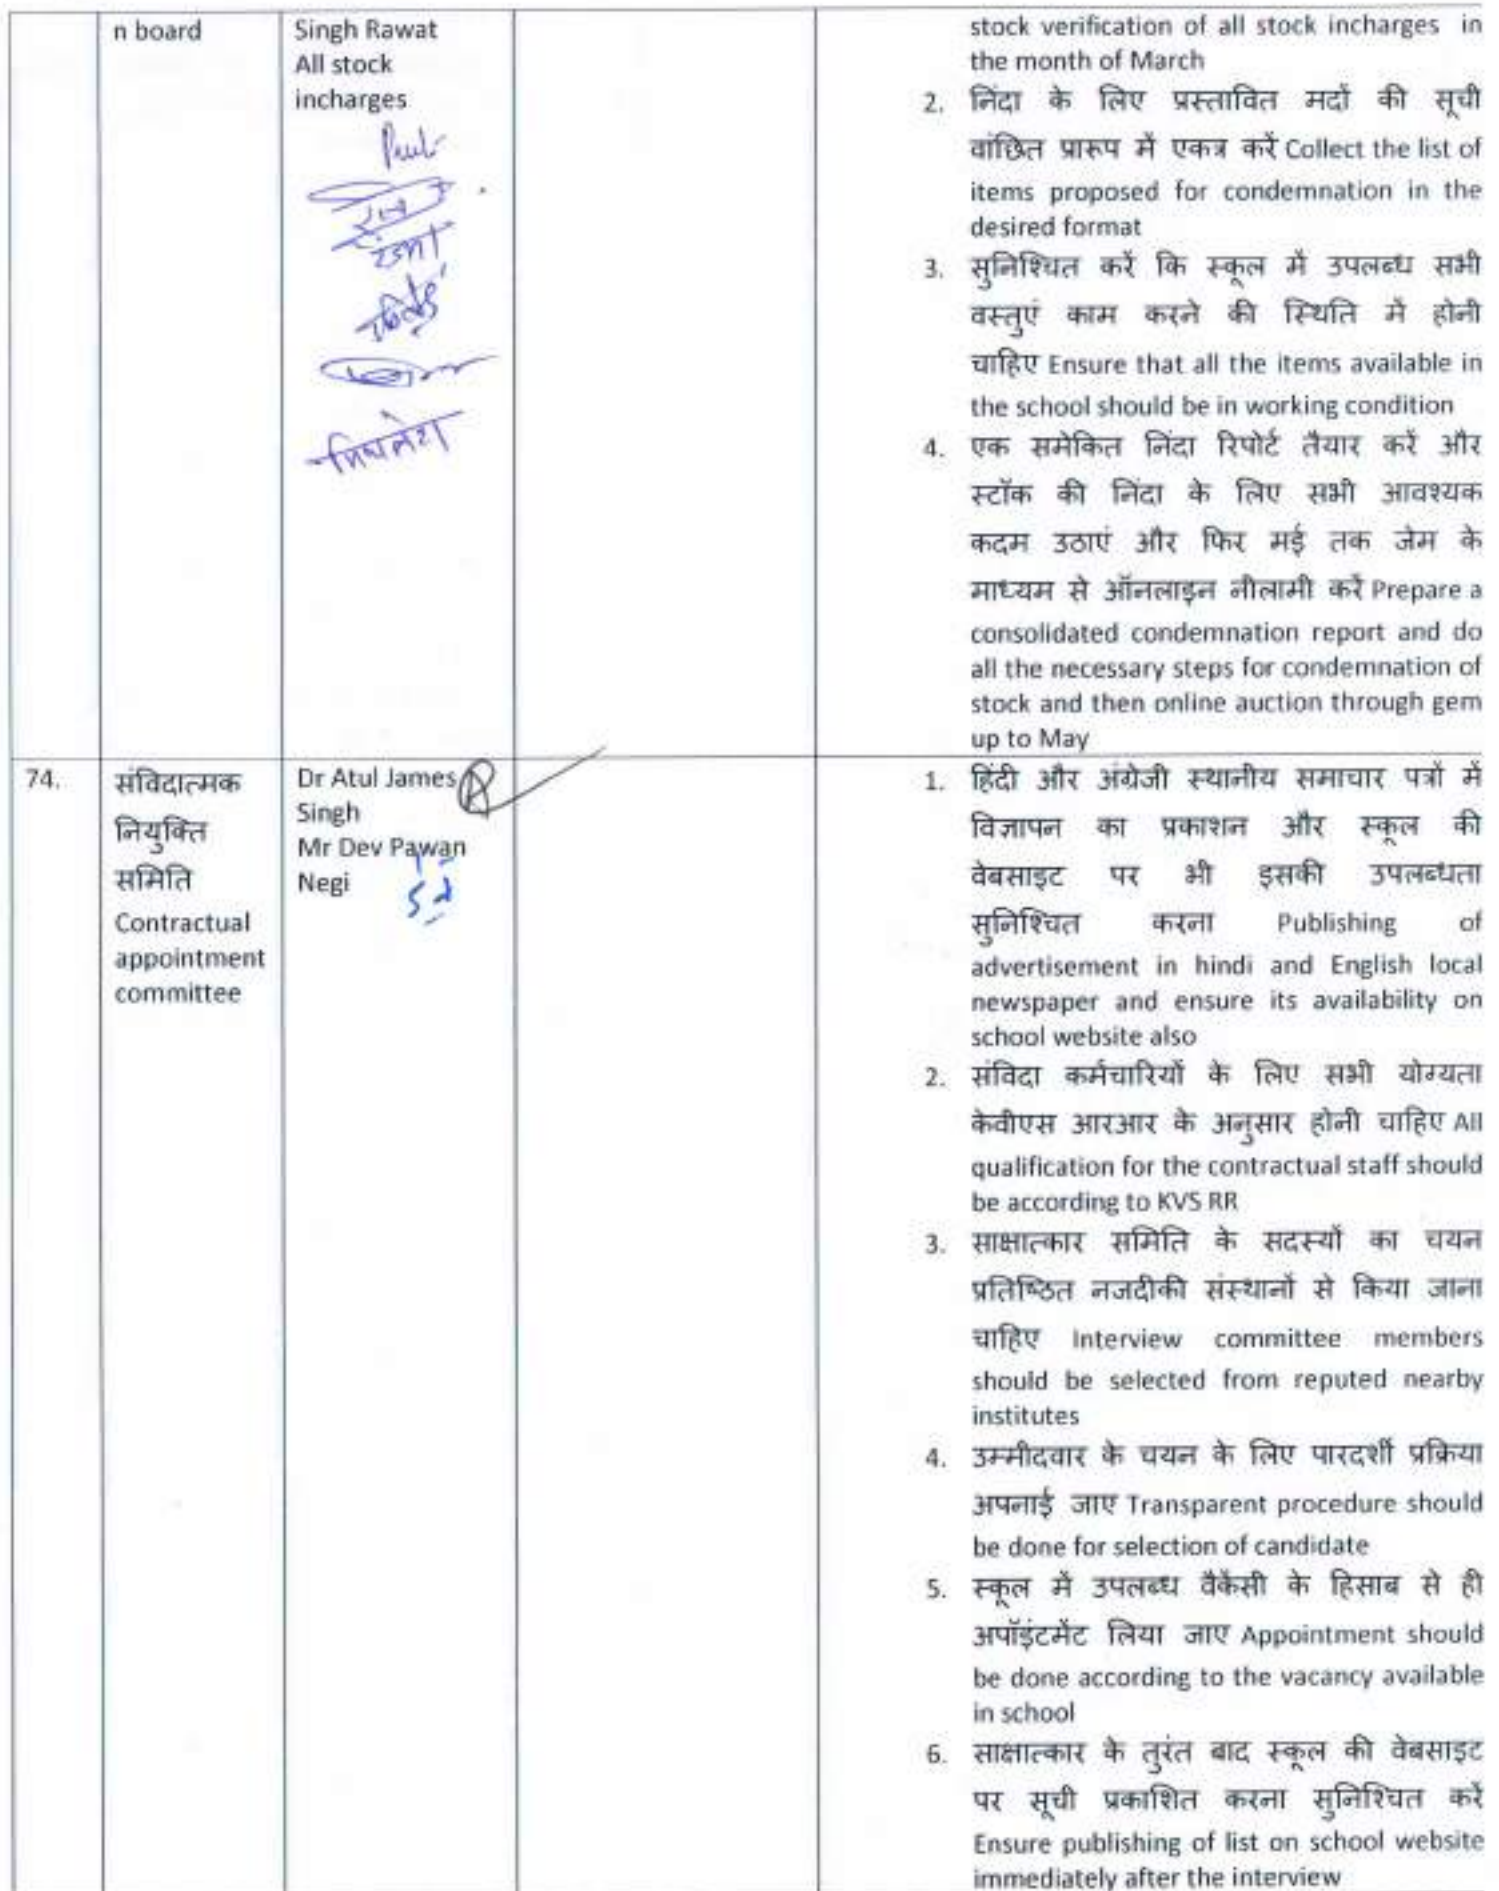 n board
Singh Rawat
All stock
incharges
stock verification of all stock incharges in
the month of March
2. निंदा के लिए प्रस्तावित मदों की सूची
वांछित प्रारूप में एकत्र करें Collect the list of
items proposed for condemnation in the
desired format
3. सुनिश्चित करें कि स्कूल में उपलब्ध सभी
वस्तुएं काम करने की स्थिति में होनी
चाहिए Ensure that all the items available in
the school should be in working condition
4. एक समेकित निंदा रिपोर्ट तैयार करें और
स्टॉक की निंदा के लिए सभी आवश्यक
कदम उठाएं और फिर मई तक जेम के
माध्यम से ऑनलाइन नीलामी करें Prepare a
consolidated condemnation report and do
all the necessary steps for condemnation of
stock and then online auction through gem
up to May
74.
संविदात्मक
नियुक्ति
समिति
Contractual
appointment
committee
Dr Atul James
Singh
Mr Dev Pawan
Negi
1. हिंदी और अंग्रेजी स्थानीय समाचार पत्रों में
विज्ञापन का प्रकाशन और स्कूल की
वेबसाइट पर भी इसकी उपलब्धता
सुनिश्चित करना Publishing of
advertisement in hindi and English local
newspaper and ensure its availability on
school website also
2. संविदा कर्मचारियों के लिए सभी योग्यता
केवीएस आरआर के अनुसार होनी चाहिए All
qualification for the contractual staff should
be according to KVS RR
3. साक्षात्कार समिति के सदस्यों का चयन
प्रतिष्ठित नजदीकी संस्थानों से किया जाना
चाहिए Interview committee members
should be selected from reputed nearby
institutes
4. उम्मीदवार के चयन के लिए पारदर्शी प्रक्रिया
अपनाई जाए Transparent procedure should
be done for selection of candidate
5. स्कूल में उपलब्ध वैकेंसी के हिसाब से ही
अपॉइंटमेंट लिया जाए Appointment should
be done according to the vacancy available
in school
6. साक्षात्कार के तुरंत बाद स्कूल की वेबसाइट
पर सूची प्रकाशित करना सुनिश्चित करें
Ensure publishing of list on school website
immediately after the interview